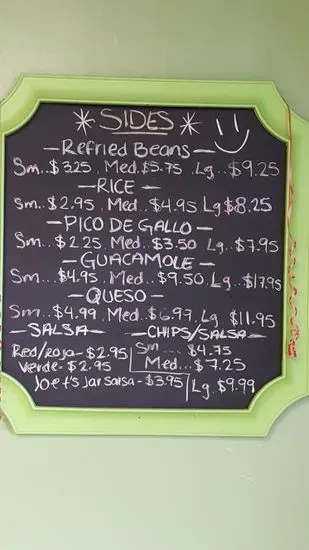 * SIDES *
-Refried Beans-
Sm..$3.25. Med.$5.75 .Lg..$9.25
-RICE-
Sm..$2.95. Med..$4.95 Lg $8.25
-PICO DE GALLO-
Sm...$2.25. Med..$3.50 Lg..$7.95
-GUACAMOLE-
Sm...$4.95. Med..$9.50. Lg..$17.95
-QUESO-
Sm...$4.99. Med..$6.99. Lg $11.95
-SALSA-
Red/roja-$2.95
Verde-$2.95
Joe t's Jar Salsa-$3.95
-CHIPS/SALSA-
Sm....$4.75
Med...$7.25
Lg.$9.99